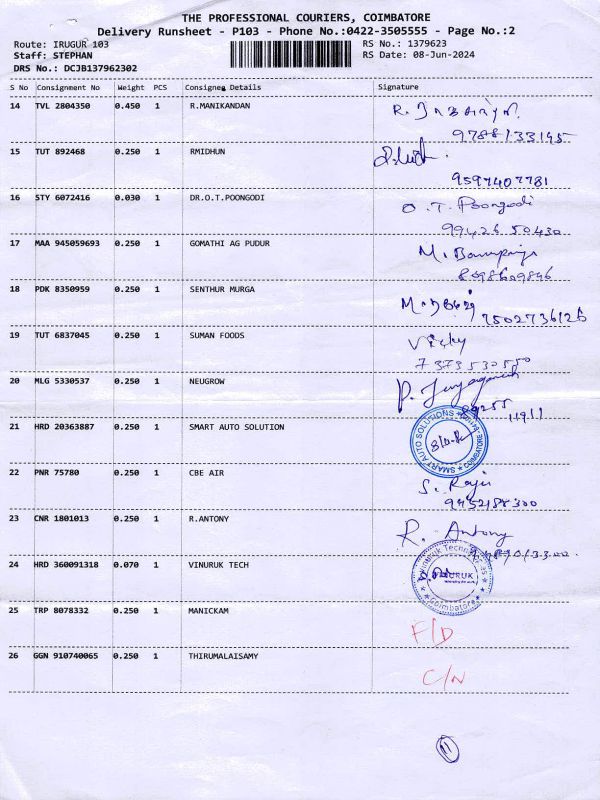 THE PROFESSIONAL COURIERS, COIMBATORE
Delivery Runsheet - P103 - Phone No.:0422-3505555 - Page No.:2
Route: IRUGUR 103 RS No.: 1379623
Staff: STEPHAN RS Date: 08-Jun-2024
DRS No.: DCJB137962302
S No Consignment No Weight PCS Consignee Details Signature
14 TVL 2804350 0.450 1 R.MANIKANDAN
9788133145
15 TUT 892468 0.250 1 RMIDHUN
9597407781
16 STY 6072416 0.030 1 DR.O.T.POONGODI O.T. Poongodi
99426 50430
17 MAA 945059693 0.250 1 GOMATHI AG PUDUR
8098609846
18 PDK 8350959 0.250 1 SENTHUR MURGA
7502736126
19 TUT 6837045 0.250 1 SUMAN FOODS Vicky
7373530550
20 MLG 5330537 0.250 1 NEUGROW
99255 11911
21 HRD 20363887 0.250 1 SMART AUTO SOLUTION SMART AUTO SOLUTIONS COIMBATORE
22 PNR 75780 0.250 1 CBE AIR S. Raju
9452188300
23 CNR 1801013 0.250 1 R.ANTONY R. Antony
24 HRD 360091318 0.070 1 VINURUK TECH VINURUK Coimbatore
25 TRP 8078332 0.250 1 MANICKAM F/D
26 GGN 910740065 0.250 1 THIRUMALAISAMY C/N
11